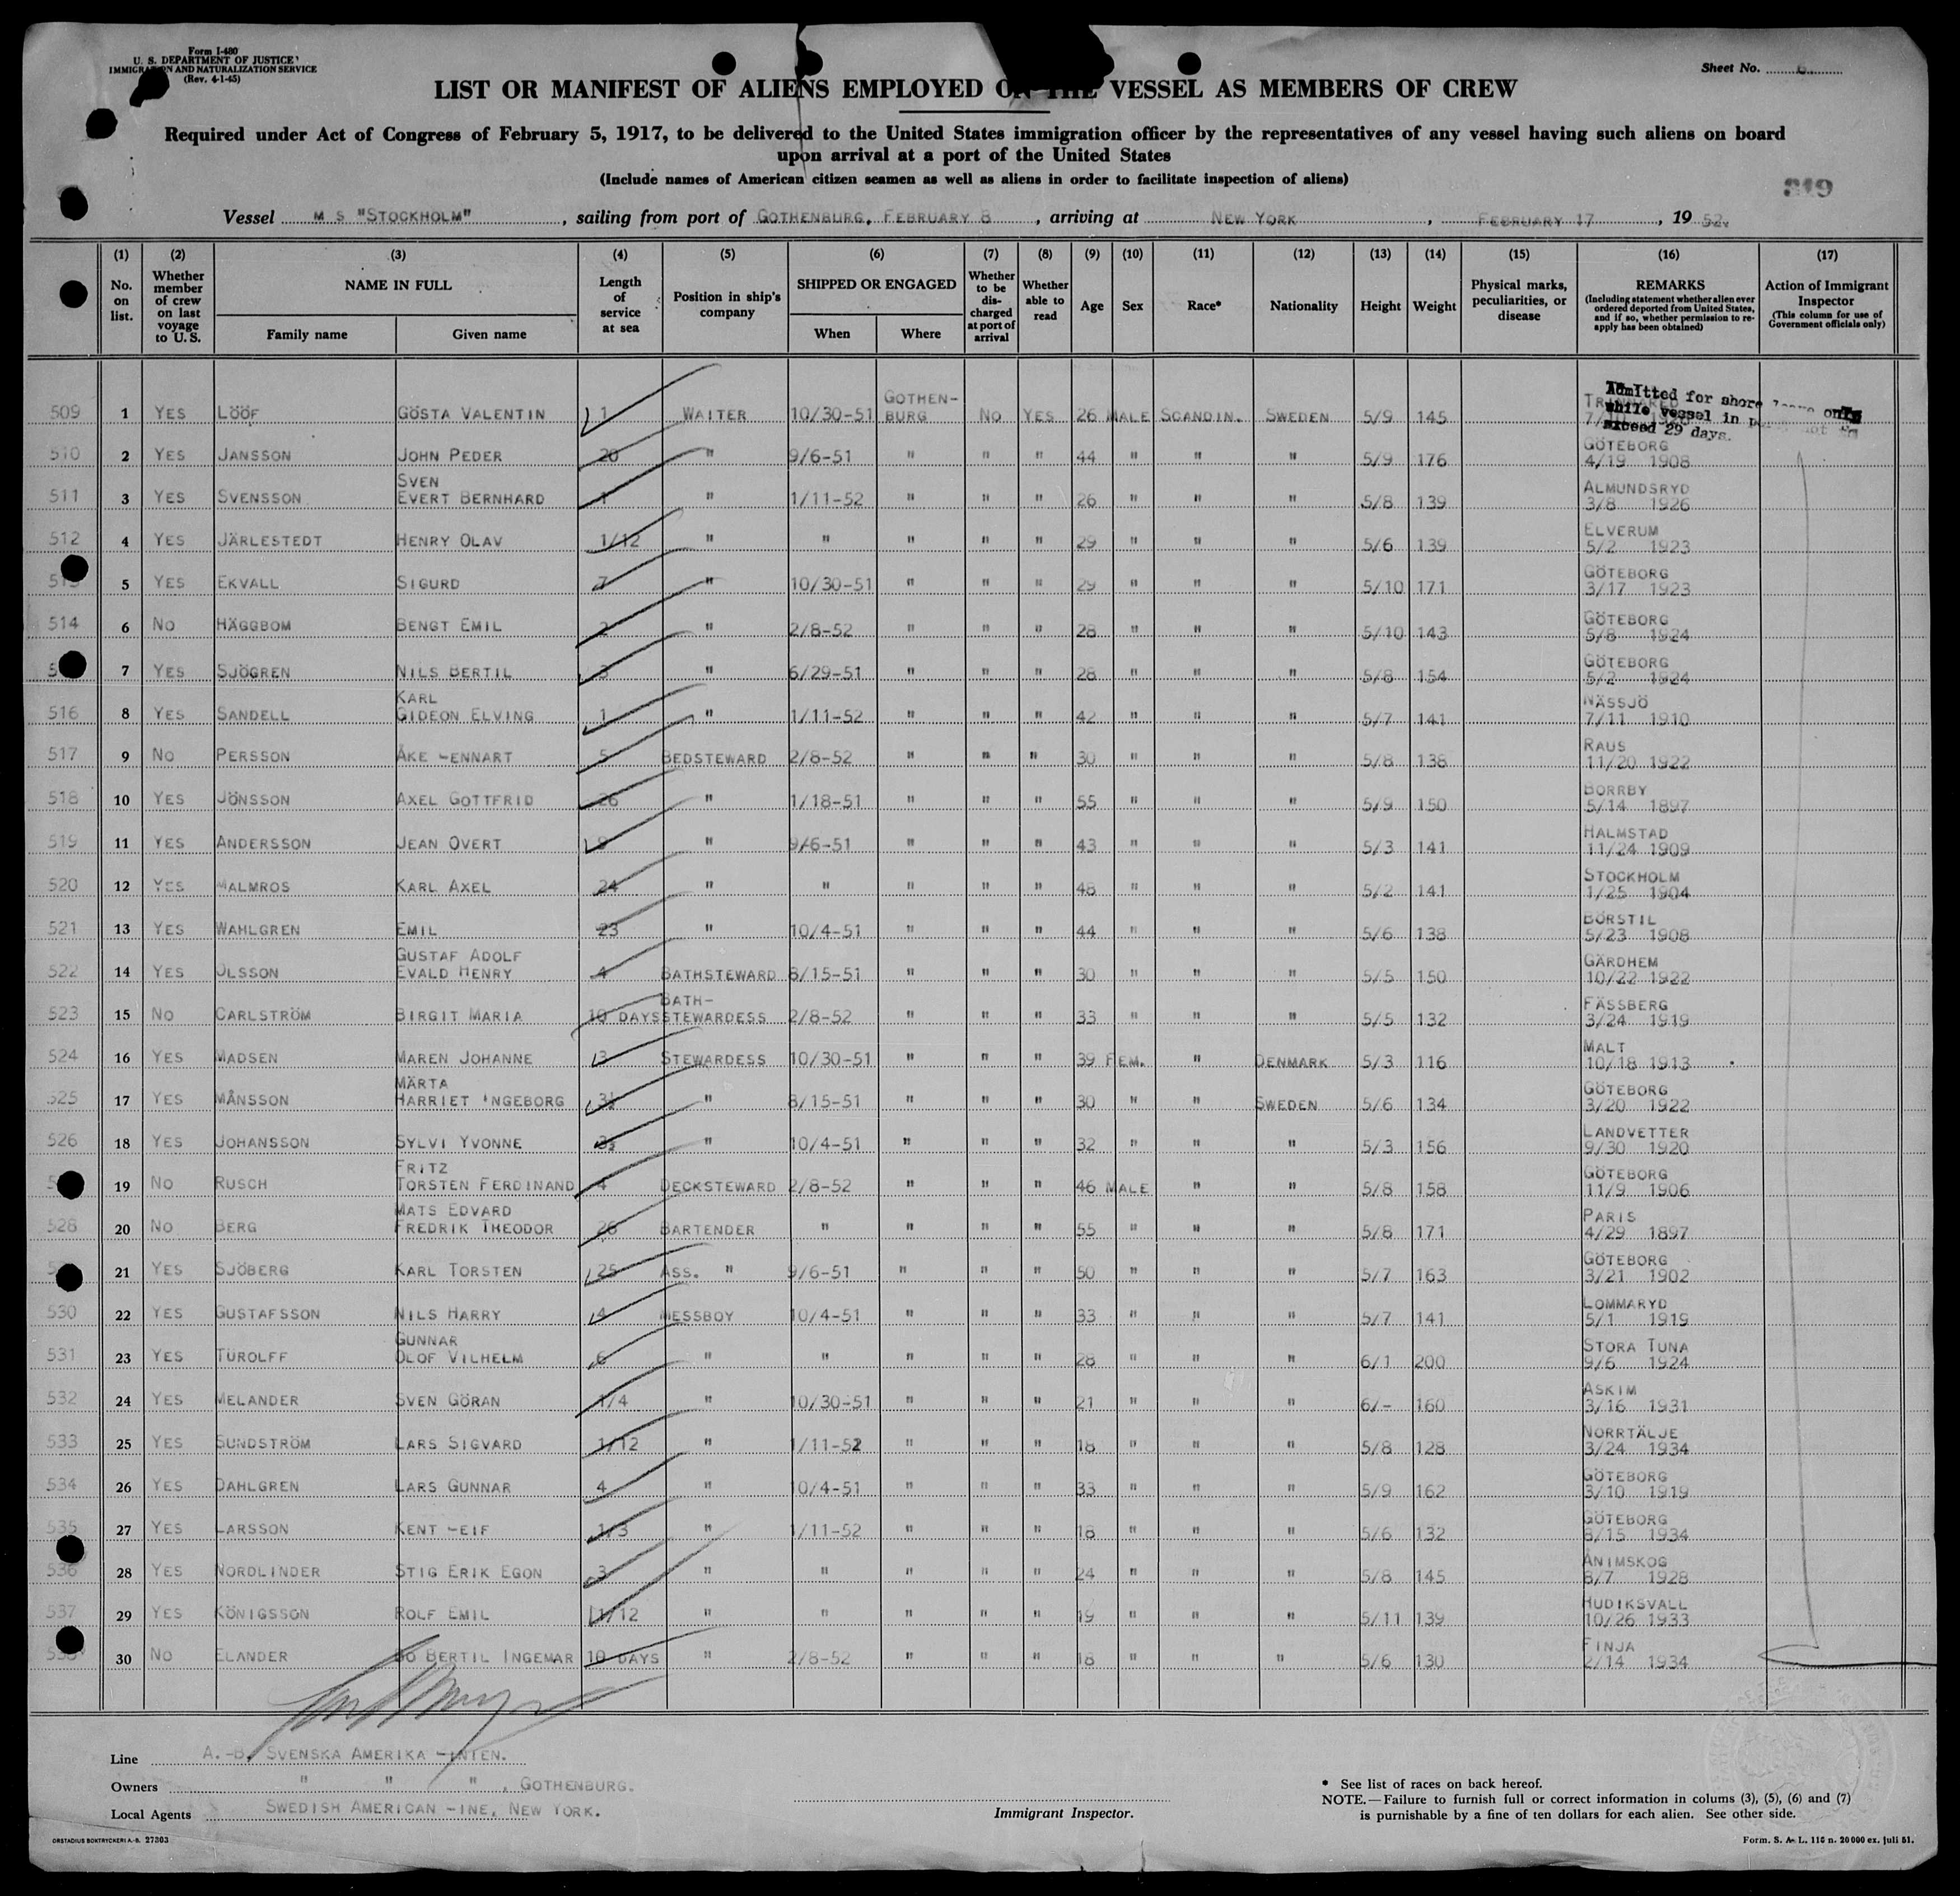 Form I-480
U. S. DEPARTMENT OF JUSTICE
IMMIGRATION AND NATURALIZATION SERVICE
(Rev. 4-1-45)
Sheet No.
LIST OR MANIFEST OF ALIENS EMPLOYED ON THE VESSEL AS MEMBERS OF CREW
Required under Act of Congress of February 5, 1917, to be delivered to the United States immigration officer by the representatives of any vessel having such aliens on board
upon arrival at a port of the United States
(Include names of American citizen seamen as well as aliens in order to facilitate inspection of aliens)
319
Vessel M S "STOCKHOLM", sailing from port of GOTHENBURG, FEBRUARY 8, arriving at NEW YORK, FEBRUARY 17, 1952.
(1) (2) (3) (4) (5) (6) (7) (8) (9) (10) (11) (12) (13) (14) (15) (16) (17)
No. on list. Whether member of crew on last voyage to U. S. NAME IN FULL Family name Given name Length of service at sea Position in ship's company SHIPPED OR ENGAGED When Where Whether to be discharged at port of arrival Whether able to read Age Sex Race* Nationality Height Weight Physical marks, peculiarities, or disease REMARKS (Including statement whether alien ever ordered deported from United States, and if so, whether permission to reapply has been obtained) Action of Immigrant Inspector (This column for use of Government officials only)
Admitted for shore leave only
while vessel in
exceed 29 days.
509 1 YES LÖÖF GÖSTA VALENTIN 1 WAITER 10/30-51 GOTHENBURG NO YES 26 MALE SCANDIN. SWEDEN 5/9 145
510 2 YES JANSSON JOHN PEDER 20 " 9/6-51 " " " 44 " " " 5/9 176 GÖTEBORG 4/19 1908
511 3 YES SVENSSON SVEN EVERT BERNHARD 1 " 1/11-52 " " " 26 " " " 5/8 139 ALMUNDSRYD 3/8 1926
512 4 YES JÄRLESTEDT HENRY OLAV 1/12 " " " " " 29 " " " 5/6 139 ELVERUM 5/2 1923
5 YES EKVALL SIGURD 7 " 10/30-51 " " " 29 " " " 5/10 171 GÖTEBORG 3/17 1923
514 6 NO HÄGGBOM BENGT EMIL 2 " 2/8-52 " " " 28 " " " 5/10 143 GÖTEBORG 5/8 1924
7 YES SJÖGREN NILS BERTIL 3 " 6/29-51 " " " 28 " " " 5/8 154 GÖTEBORG 5/2 1924
516 8 YES SANDELL KARL GIDEON ELVING 1 " 1/11-52 " " " 42 " " " 5/7 141 NÄSSJÖ 7/11 1910
517 9 NO PERSSON ÅKE LENNART 5 BEDSTEWARD 2/8-52 " " " 30 " " " 5/8 138 RAUS 11/20 1922
518 10 YES JÖNSSON AXEL GOTTFRID 26 " 1/18-51 " " " 55 " " " 5/9 150 BORRBY 5/14 1897
519 11 YES ANDERSSON JEAN OVERT 9 " 9/6-51 " " " 43 " " " 5/3 141 HALMSTAD 11/24 1909
520 12 YES MALMROS KARL AXEL 24 " " " " " 48 " " " 5/2 141 STOCKHOLM 1/25 1904
521 13 YES WAHLGREN EMIL 23 " 10/4-51 " " " 44 " " " 5/6 138 BÖRSTIL 5/23 1908
522 14 YES OLSSON GUSTAF ADOLF EVALD HENRY 4 BATHSTEWARD 8/15-51 " " " 30 " " " 5/5 150 GÄRDHEM 10/22 1922
523 15 NO CARLSTRÖM BIRGIT MARIA 10 DAYS BATH-STEWARDESS 2/8-52 " " " 33 " " " 5/5 132 FÄSSBERG 3/24 1919
524 16 YES MADSEN MAREN JOHANNE 3 STEWARDESS 10/30-51 " " " 39 FEM. " DENMARK 5/3 116 MALT 10/18 1913
525 17 YES MÅNSSON MÄRTA HARRIET INGEBORG 3½ " 8/15-51 " " " 30 " " SWEDEN 5/6 134 GÖTEBORG 3/20 1922
526 18 YES JOHANSSON SYLVI YVONNE 3½ " 10/4-51 " " " 32 " " " 5/3 156 LANDVETTER 9/30 1920
19 NO RUSCH FRITZ TORSTEN FERDINAND 4 DECKSTEWARD 2/8-52 " " " 46 MALE " " 5/8 158 GÖTEBORG 11/9 1906
528 20 NO BERG MATS EDVARD FREDRIK THEODOR 26 BARTENDER " " " " 55 " " " 5/8 171 PARIS 4/29 1897
21 YES SJÖBERG KARL TORSTEN 25 ASS. " 9/6-51 " " " 50 " " " 5/7 163 GÖTEBORG 3/21 1902
530 22 YES GUSTAFSSON NILS HARRY 4 MESSBOY 10/4-51 " " " 33 " " " 5/7 141 LOMMARYD 5/1 1919
531 23 YES TUROLFF GUNNAR OLOF VILHELM 6 " " " " " 28 " " " 6/1 200 STORA TUNA 9/6 1924
532 24 YES MELANDER SVEN GÖRAN 1/4 " 10/30-51 " " " 21 " " " 6/- 160 ASKIM 3/16 1931
533 25 YES SUNDSTRÖM LARS SIGVARD 1/12 " 1/11-52 " " " 18 " " " 5/8 128 NORRTÄLJE 3/24 1934
534 26 YES DAHLGREN LARS GUNNAR 4 " 10/4-51 " " " 33 " " " 5/9 162 GÖTEBORG 3/10 1919
535 27 YES LARSSON KENT LEIF 1/3 " 1/11-52 " " " 18 " " " 5/6 132 GÖTEBORG 8/15 1934
536 28 YES NORDLINDER STIG ERIK EGON 3 " " " " " 24 " " " 5/8 145 ÅNIMSKOG 8/7 1928
537 29 YES KÖNIGSSON ROLF EMIL 1/12 " " " " " 19 " " " 5/11 139 HUDIKSVALL 10/26 1933
30 NO ELANDER BO BERTIL INGEMAR 10 DAYS " 2/8-52 " " " 18 " " " 5/6 130 FINJA 2/14 1934
Line A.-B. SVENSKA AMERIKA LINIEN.
Owners " " ", GOTHENBURG.
Local Agents SWEDISH AMERICAN LINE, NEW YORK.
Immigrant Inspector.
* See list of races on back hereof.
NOTE.—Failure to furnish full or correct information in colums (3), (5), (6) and (7)
is punishable by a fine of ten dollars for each alien. See other side.
ORSTADIUS BOKTRYCKERI A.-B. 27303
Form. S. A. L. 116 n. 20000 ex. juli 51.